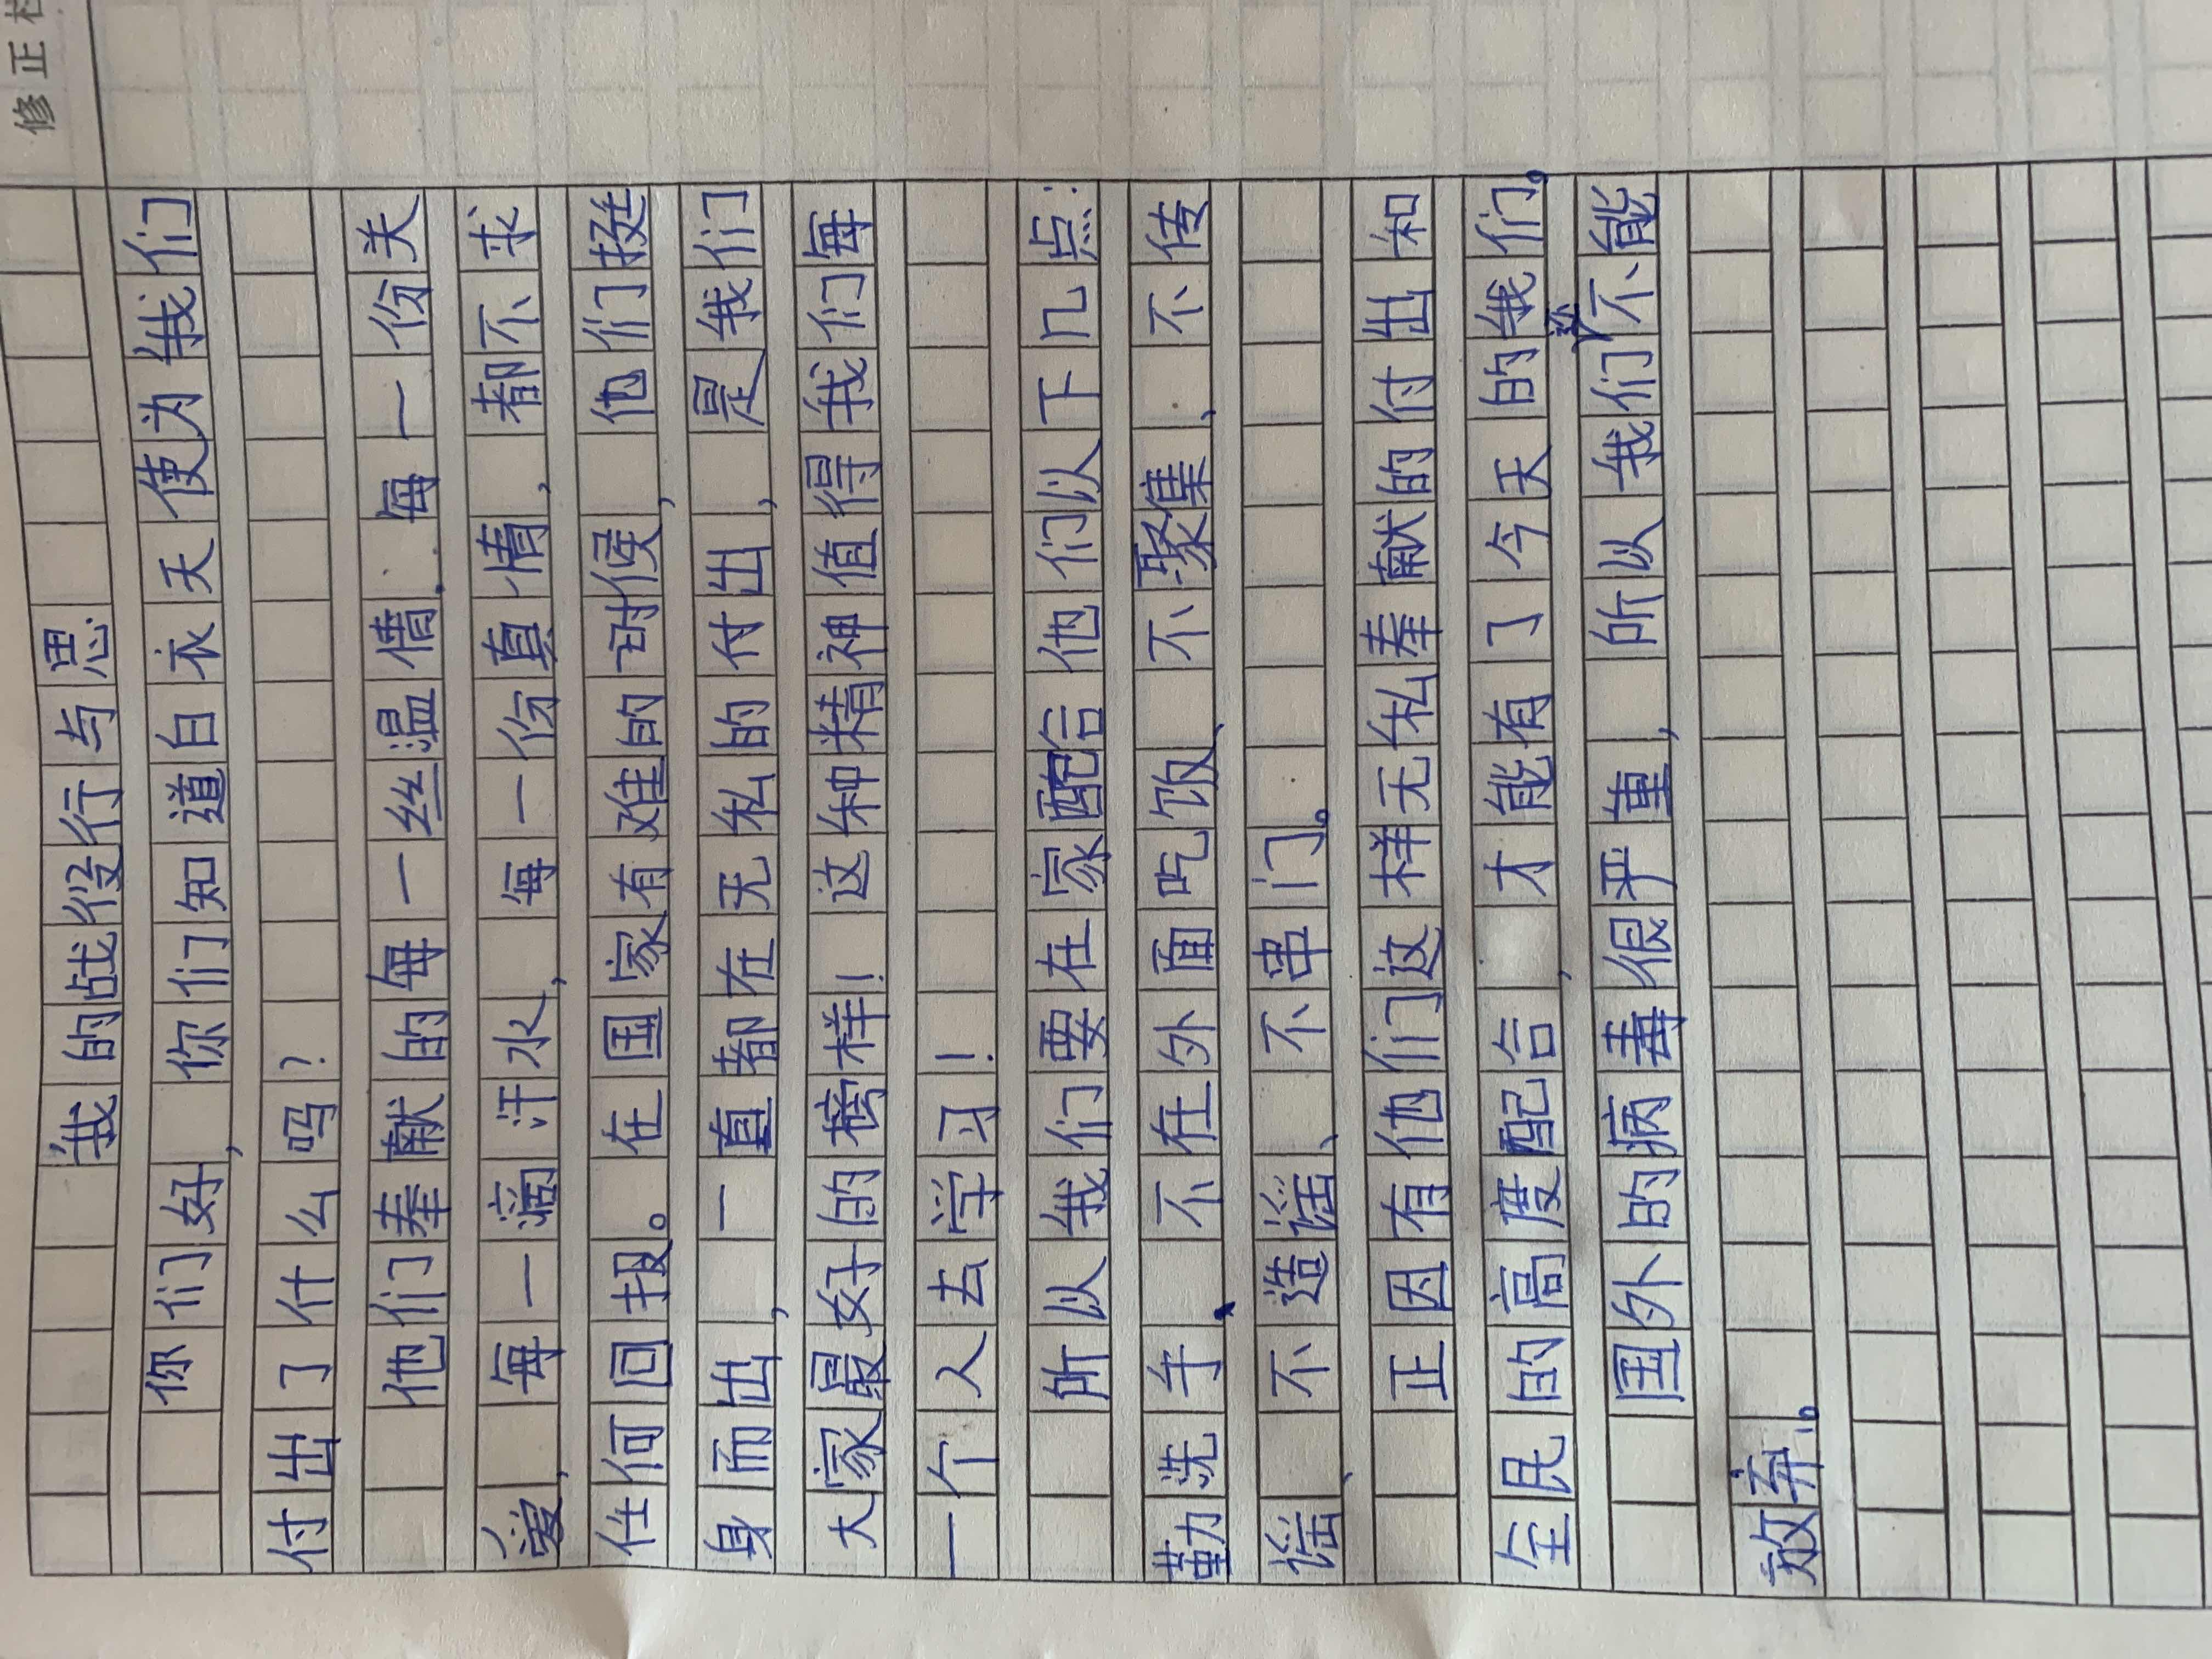 修正栏
我的战役行与思
你们好，你们知道白衣天使为我们
付出了什么吗？
他们奉献的每一丝温情，每一份关
爱，每一滴汗水，每一份真情，都不求
任何回报。在国家有难的时候，他们挺
身而出，一直都在无私的付出，是我们
大家最好的榜样！这种精神值得我们每
一个人去学习！
所以我们要在家配合他们以下几点：
勤洗手、不在外面吃饭、不聚集、不传
谣、不造谣、不串门。
正因有他们这样无私奉献的付出和
全民的高度配合，才能有了今天的我们。
国外的病毒很严重，所以我们不能
放弃。